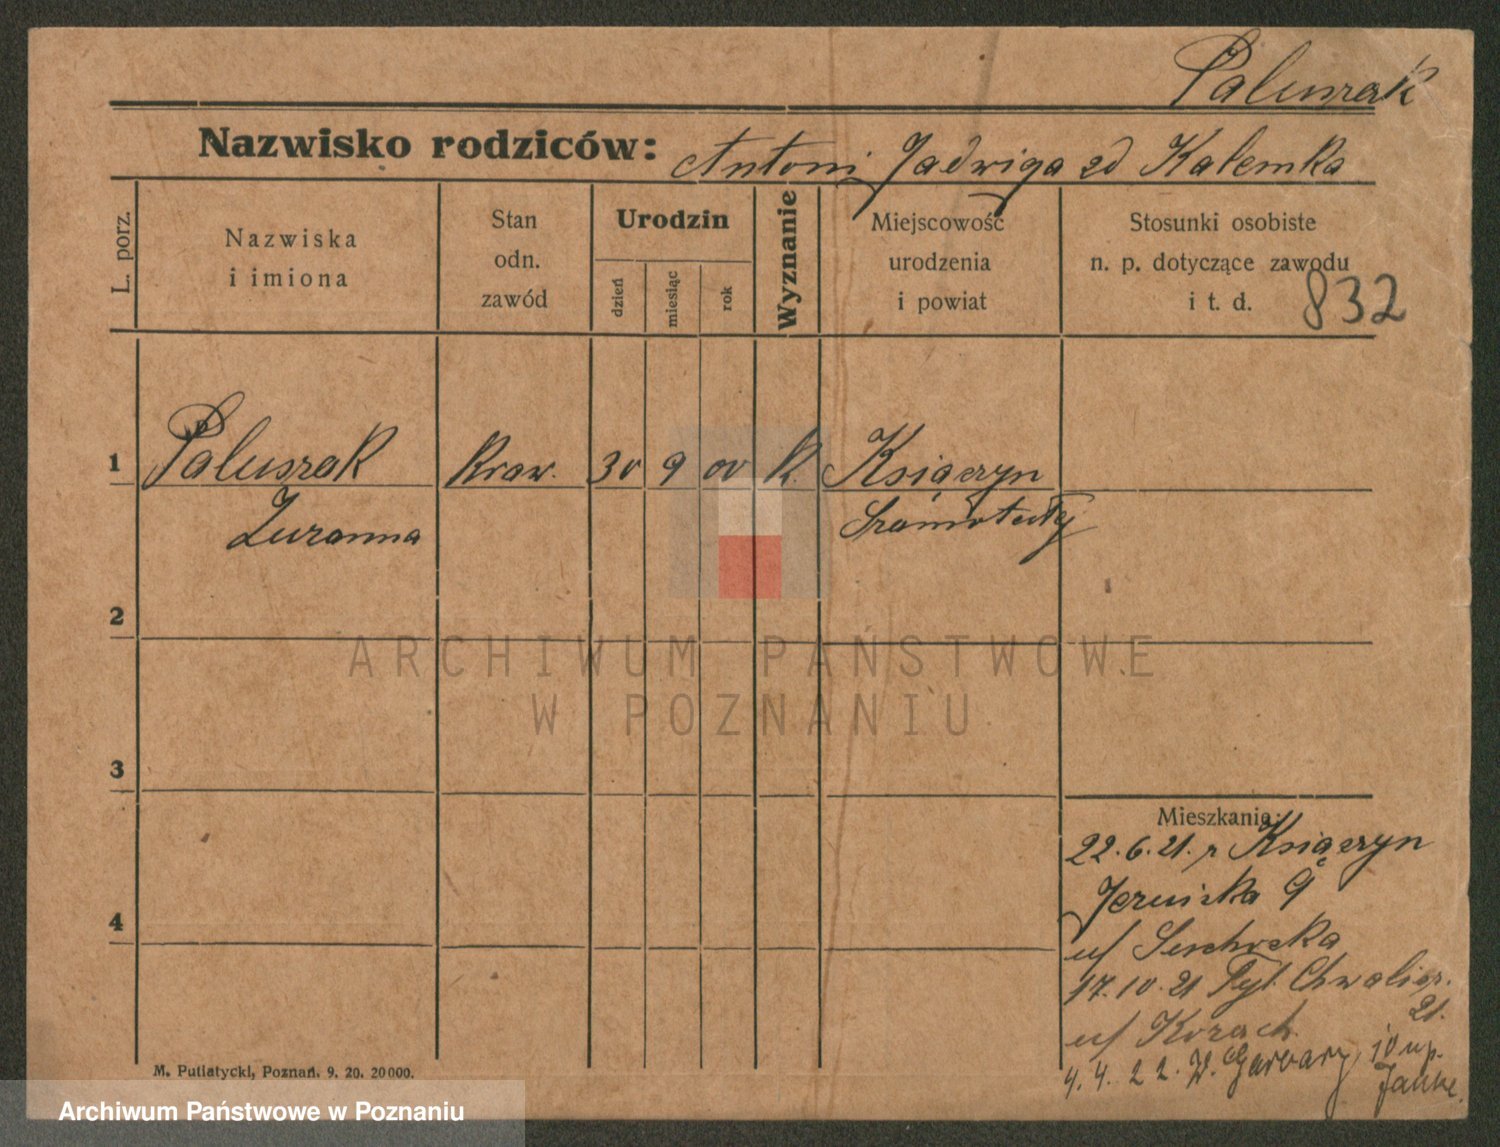 Paluszak
Nazwisko rodziców: Antoni Jadwiga zd Kalemka
L. porz.
Nazwiska
i imiona
Stan
odn.
zawód
Urodzin
dzień
miesiąc
rok
Wyznanie
Miejscowość
urodzenia
i powiat
Stosunki osobiste
n. p. dotyczące zawodu
i t. d.
832
1 Paluszak Kraw. 30 9 00 K. Książyn
Zuzanna Szamotuły
2
3
4
Mieszkanie:
22.6.21. z
9
u/
17.10.21 Tył. Chwalisz.
21.
u/ Kozach
4.4.22. W. Garbary, 10 u p.
M. Putiatycki, Poznań. 9. 20. 20000.
ARCHIWUM PAŃSTWOWE
W POZNANIU
Archiwum Państwowe w Poznaniu